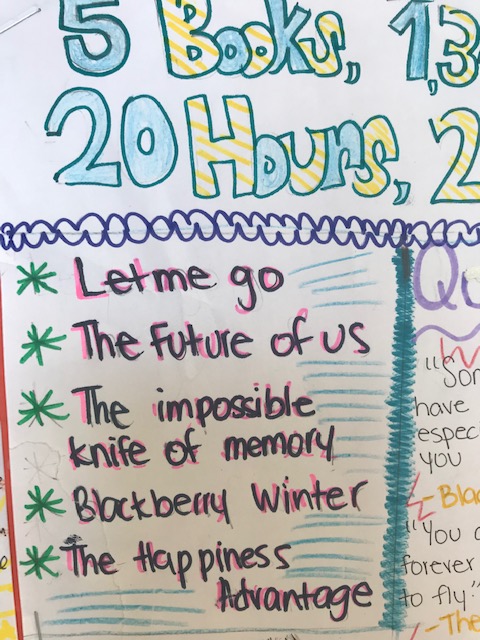 5 Books, 1,3
20 Hours, 2
Let me go
The Future of us
The impossible
knife of memory
Blackberry Winter
The Happiness
Advantage
Qu
"Som
have
espec
you
- Blac
"You c
forever
to fly."
- The